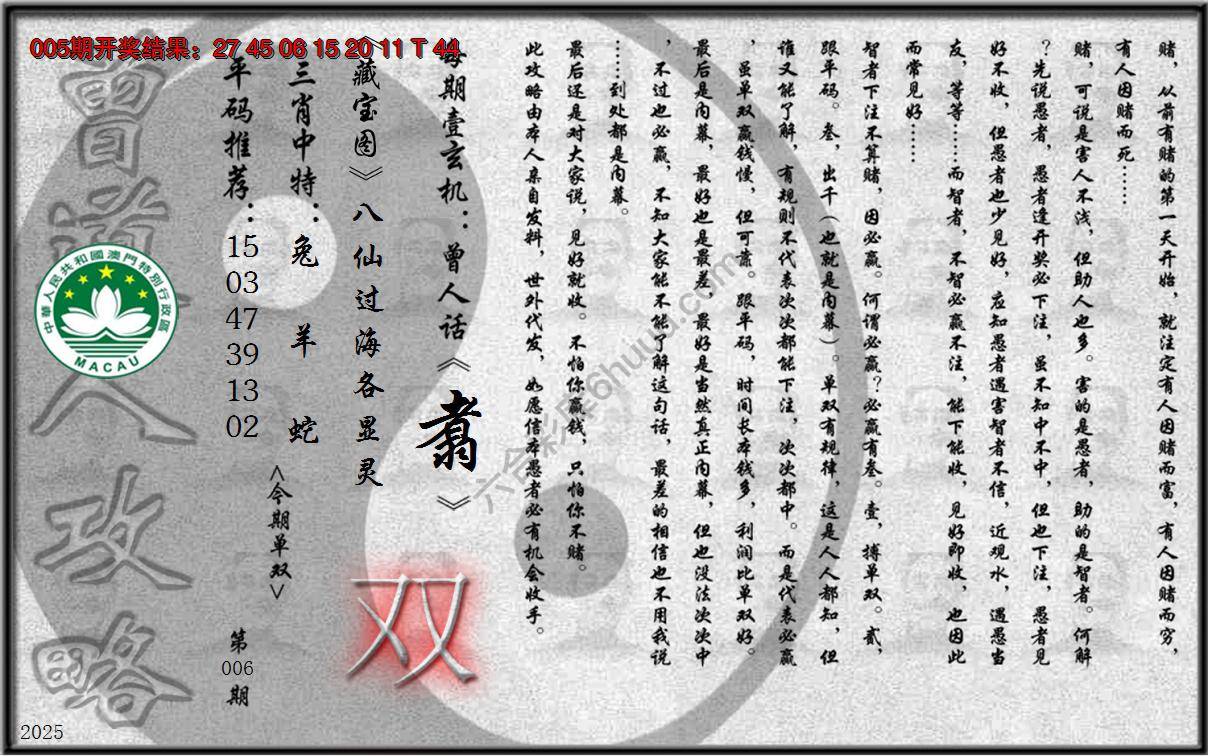 005期开奖结果：27 45 06 15 20 11 T 44
赌，从前有赌的第一天开始，就注定有人因赌而富，有人因赌而穷，
有人因赌而死……
赌，可说是害人不浅，但助人也多。害的是愚者，助的是智者。何解
？先说愚者，愚者逢开奖必下注，虽不知中不中，但也下注，愚者见
好不收，但愚者也少见好，应知愚者遇害智者不信，近观水，遇愚当
友，等等……而智者，不智必赢不注，能下能收，见好即收，也因此
而常见好……
智者下注不算赌，因必赢。何谓必赢？必赢有叁。壹，搏单双。贰，
跟平码。叁，出千（也就是内幕）。单双有规律，这是人人都知，但
谁又能了解，有规则不代表次次都能下注，次次都中。而是代表必赢
，虽单双赢钱慢，但可靠。跟平码，时间长本钱多，利润比单双好。
最后是内幕，最好也是最差，最好是当然真正内幕，但也没法次次中
，不过也必赢，不知大家能不能了解这句话，最差的相信也不用我说
……到处都是内幕。
最后还是对大家说，见好就收。不怕你赢钱，只怕你不赌。
此攻略由本人亲自发料，世外代发，如愿信本愚者必有机会收手。
每期壹玄机：曾人话《翥》
《藏宝图》八仙过海各显灵
双
三肖中特：兔 羊 蛇
<今期单双>
平码推荐：15 03 47 39 13 02
第006期
曾道人攻略
中華人民共和國澳門特別行政區
MACAU
2025